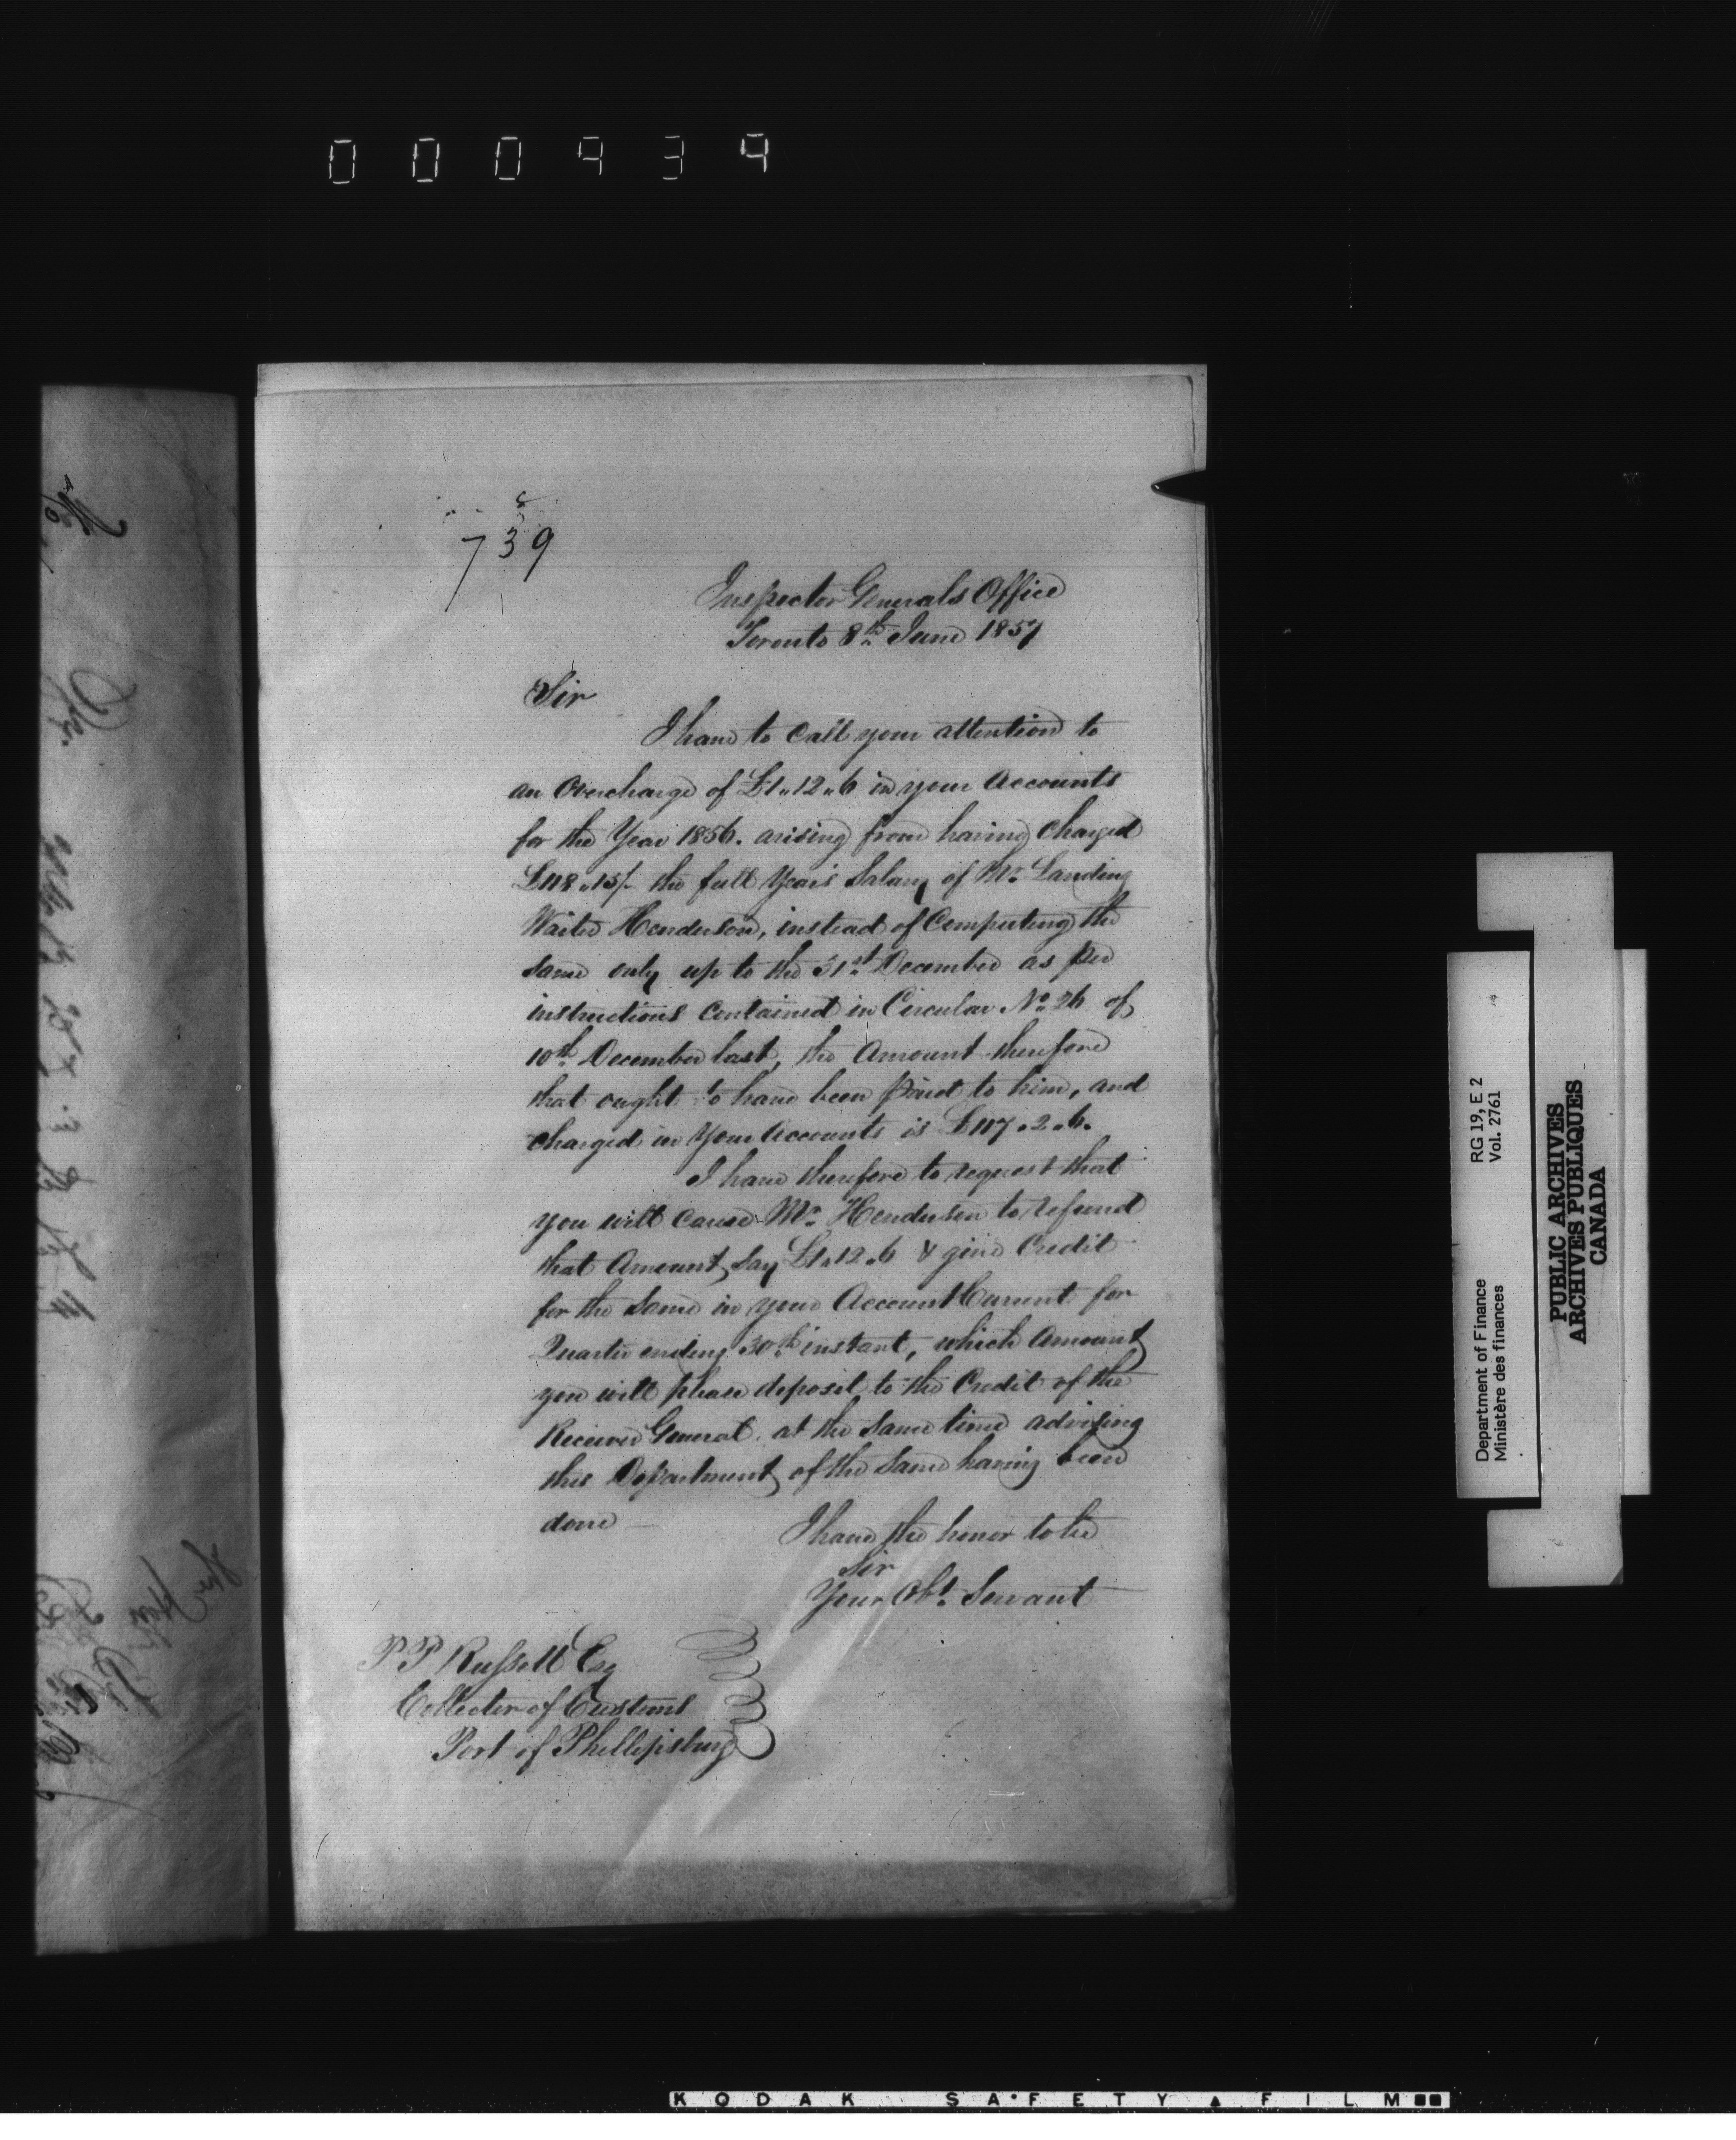 000434
739
Inspector Generals Office
Toronto 8th June 1857
Sir
I have to Call your attention to
an Overcharge of £1"12"6 in your Accounts
for the Year 1856. arising from having Charged
£118"15/- the full Years Salary of Mr Landing
Waiter Henderson, instead of Computing the
same only up to the 31st December as per
instructions Contained in Circular No 26 of
10th December last, the Amount therefore
that ought to have been paid to him, and
charged in Your Accounts is £117.2.6.
I have therefore to request that
you will cause Mr Henderson to refund
that Amount, Say £1"12.6 & give Credit
for the Same in your Account Current for
Quarter ending 30th instant, which Amount
you will please deposit to the Credit of the
Receiver General. at the Same time advising
this Department of the Same having been
done —
I have the honor to be
Sir
Your Obt. Servant
P P Russell Esq
Collector of Customs
Port of Phillipsburg
Department of Finance RG 19, E 2
Ministère des finances Vol. 2761
PUBLIC ARCHIVES
ARCHIVES PUBLIQUES
CANADA
KODAK SA•FETY ▲ FILM